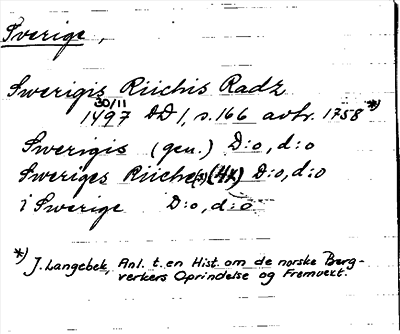 Sverige,
Swerigis Riichis Radz
30/11
1497 DD 1, s. 166 avtr. 1758 *)
Swerigis (gen.) D:o, d:o
Sweriges Riiche(s) (4x) D:o, d:o
i Swerige D:o, d:o
*) J. Langebek, Anl. t. en Hist. om de norske Berg-
verkers Oprindelse og Fremvext.